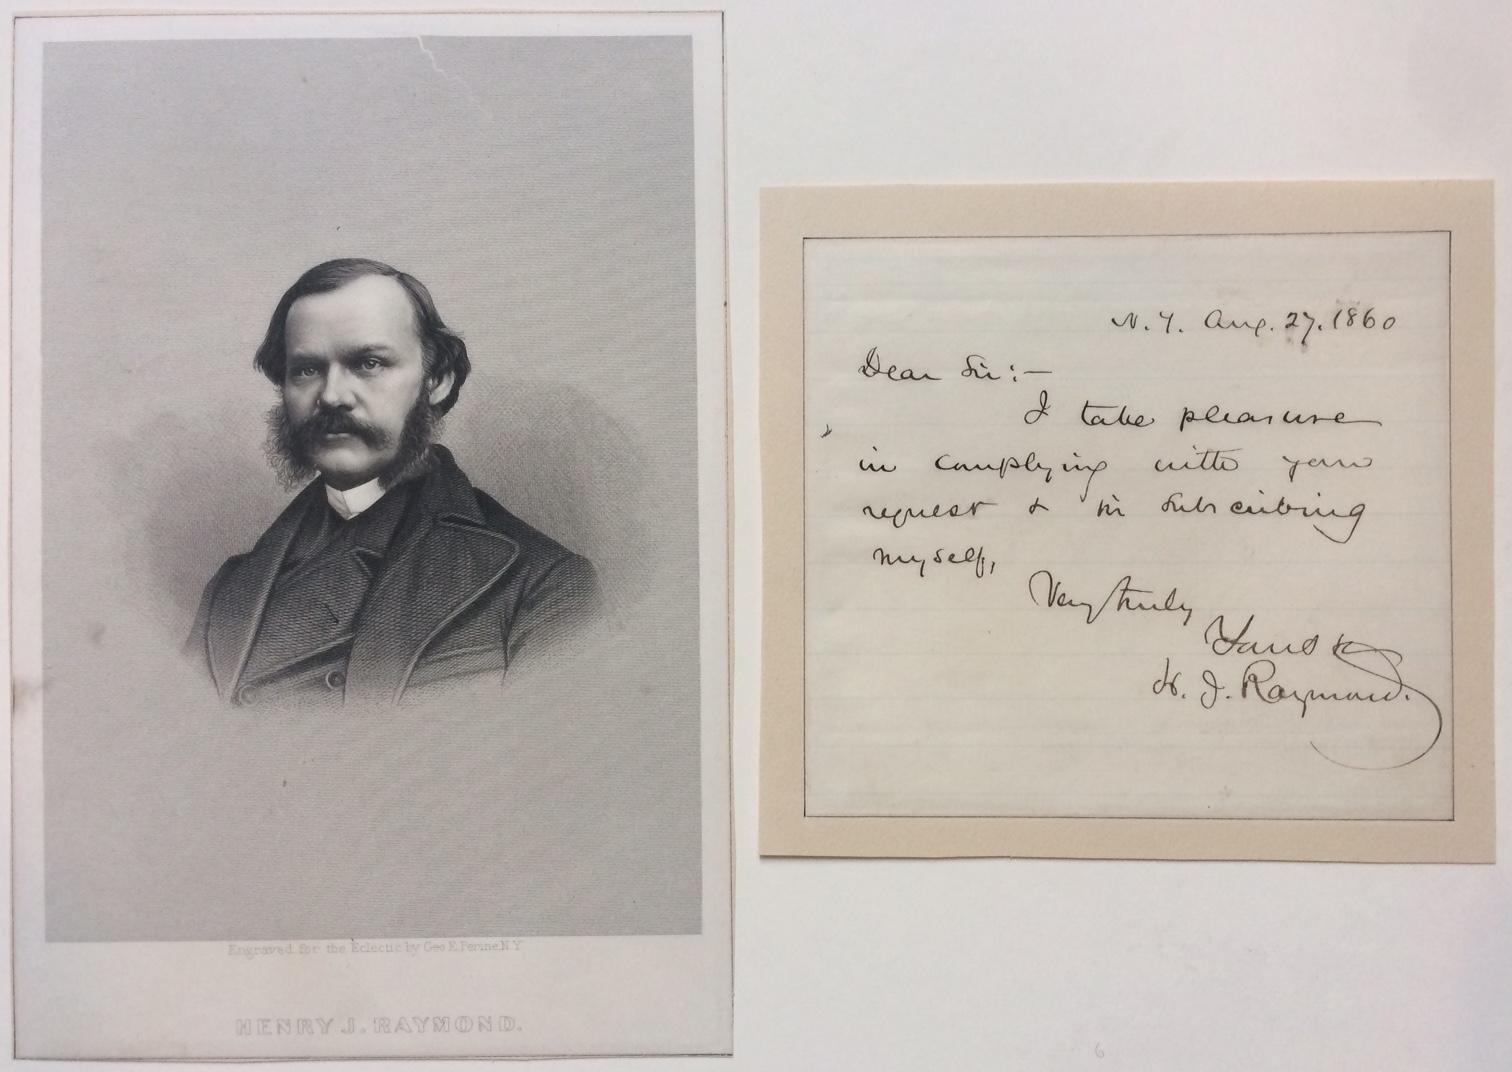 Engraved for the Eclectic by Geo E. Perine N.Y.
HENRY J. RAYMOND.
N.Y. Aug. 27. 1860
Dear Sir:—
I take pleasure
in complying with your
request & in subscribing
myself,
Very truly
Yours &c
H. J. Raymond.
6